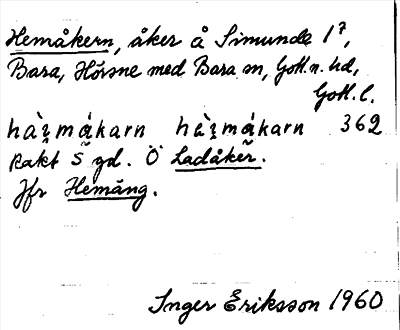 Hemåkern, åker å Simunde 1⁷,
Bara, Hörsne med Bara sn, Gotl. n. hd,
Gotl. l.
hàįmákarn hàįmákarn 362
rakt S gd. Ö Ladåker.
Jfr Hemäng.
Inger Eriksson 1960